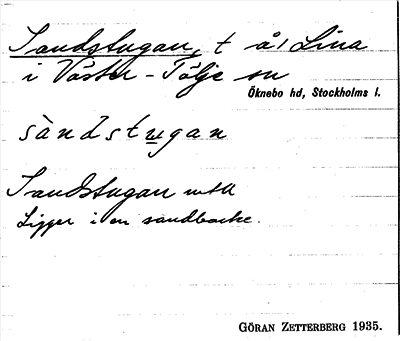 Sandstugan, t å/ Lina
i Väster-Tälje sn
Öknebo hd, Stockholms l.
sàndstugan
Sandstugan
Ligger i en sandbacke.
GÖRAN ZETTERBERG 1935.